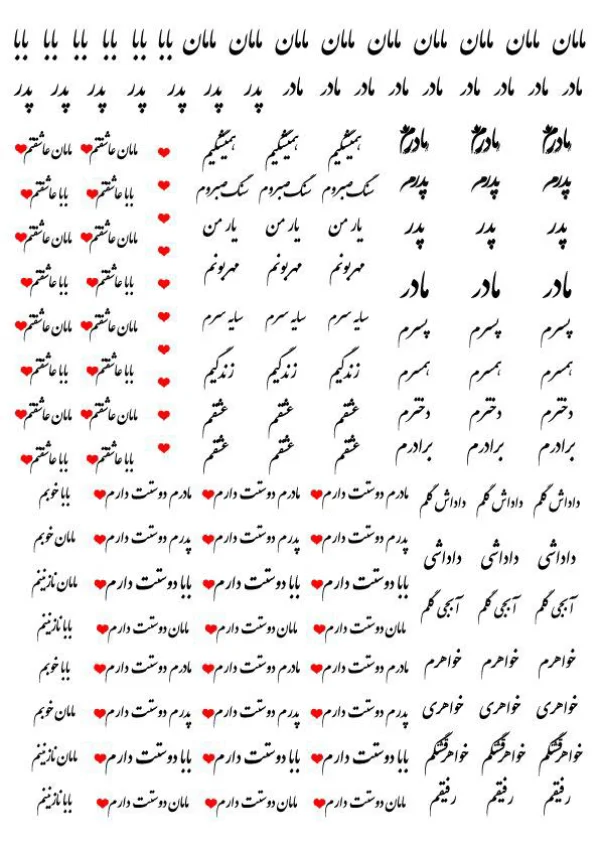 مامان مامان مامان مامان مامان مامان مامان مامان مامان بابا بابا بابا بابا بابا بابا
مادر مادر مادر مادر مادر مادر مادر مادر مادر پدر پدر پدر پدر پدر پدر پدر
مادرم مادرم مادرم همیشگیم همیشگیم همیشگیم مامان عاشقتم مامان عاشقتم
پدرم پدرم پدرم سنگ صبورم سنگ صبورم سنگ صبورم بابا عاشقتم بابا عاشقتم
پدر پدر پدر یار من یار من یار من مامان عاشقتم مامان عاشقتم
مادر مادر مادر مهربونم مهربونم مهربونم بابا عاشقتم بابا عاشقتم
پسرم پسرم پسرم سایه سرم سایه سرم سایه سرم مامان عاشقتم مامان عاشقتم
همسرم همسرم همسرم زندگیم زندگیم زندگیم بابا عاشقتم بابا عاشقتم
دخترم دخترم دخترم عشقم عشقم عشقم مامان عاشقتم مامان عاشقتم
برادرم برادرم برادرم عشقم عشقم عشقم بابا عاشقتم بابا عاشقتم
داداش گلم داداش گلم داداش گلم مادرم دوستت دارم مادرم دوستت دارم مادرم دوستت دارم بابا خوبم
پدرم دوستت دارم پدرم دوستت دارم پدرم دوستت دارم مامان خوبم
داداشی داداشی داداشی بابا دوستت دارم بابا دوستت دارم بابا دوستت دارم مامان نازنینم
آبجی گلم آبجی گلم آبجی گلم مامان دوستت دارم مامان دوستت دارم مامان دوستت دارم بابا نازنینم
خواهرم خواهرم خواهرم مادرم دوستت دارم مادرم دوستت دارم مادرم دوستت دارم بابا خوبم
خواهری خواهری خواهری پدرم دوستت دارم پدرم دوستت دارم پدرم دوستت دارم مامان خوبم
خواهر قشنگم خواهر قشنگم خواهر قشنگم بابا دوستت دارم بابا دوستت دارم بابا دوستت دارم مامان نازنینم
رفیقم رفیقم رفیقم مامان دوستت دارم مامان دوستت دارم مامان دوستت دارم بابا نازنینم